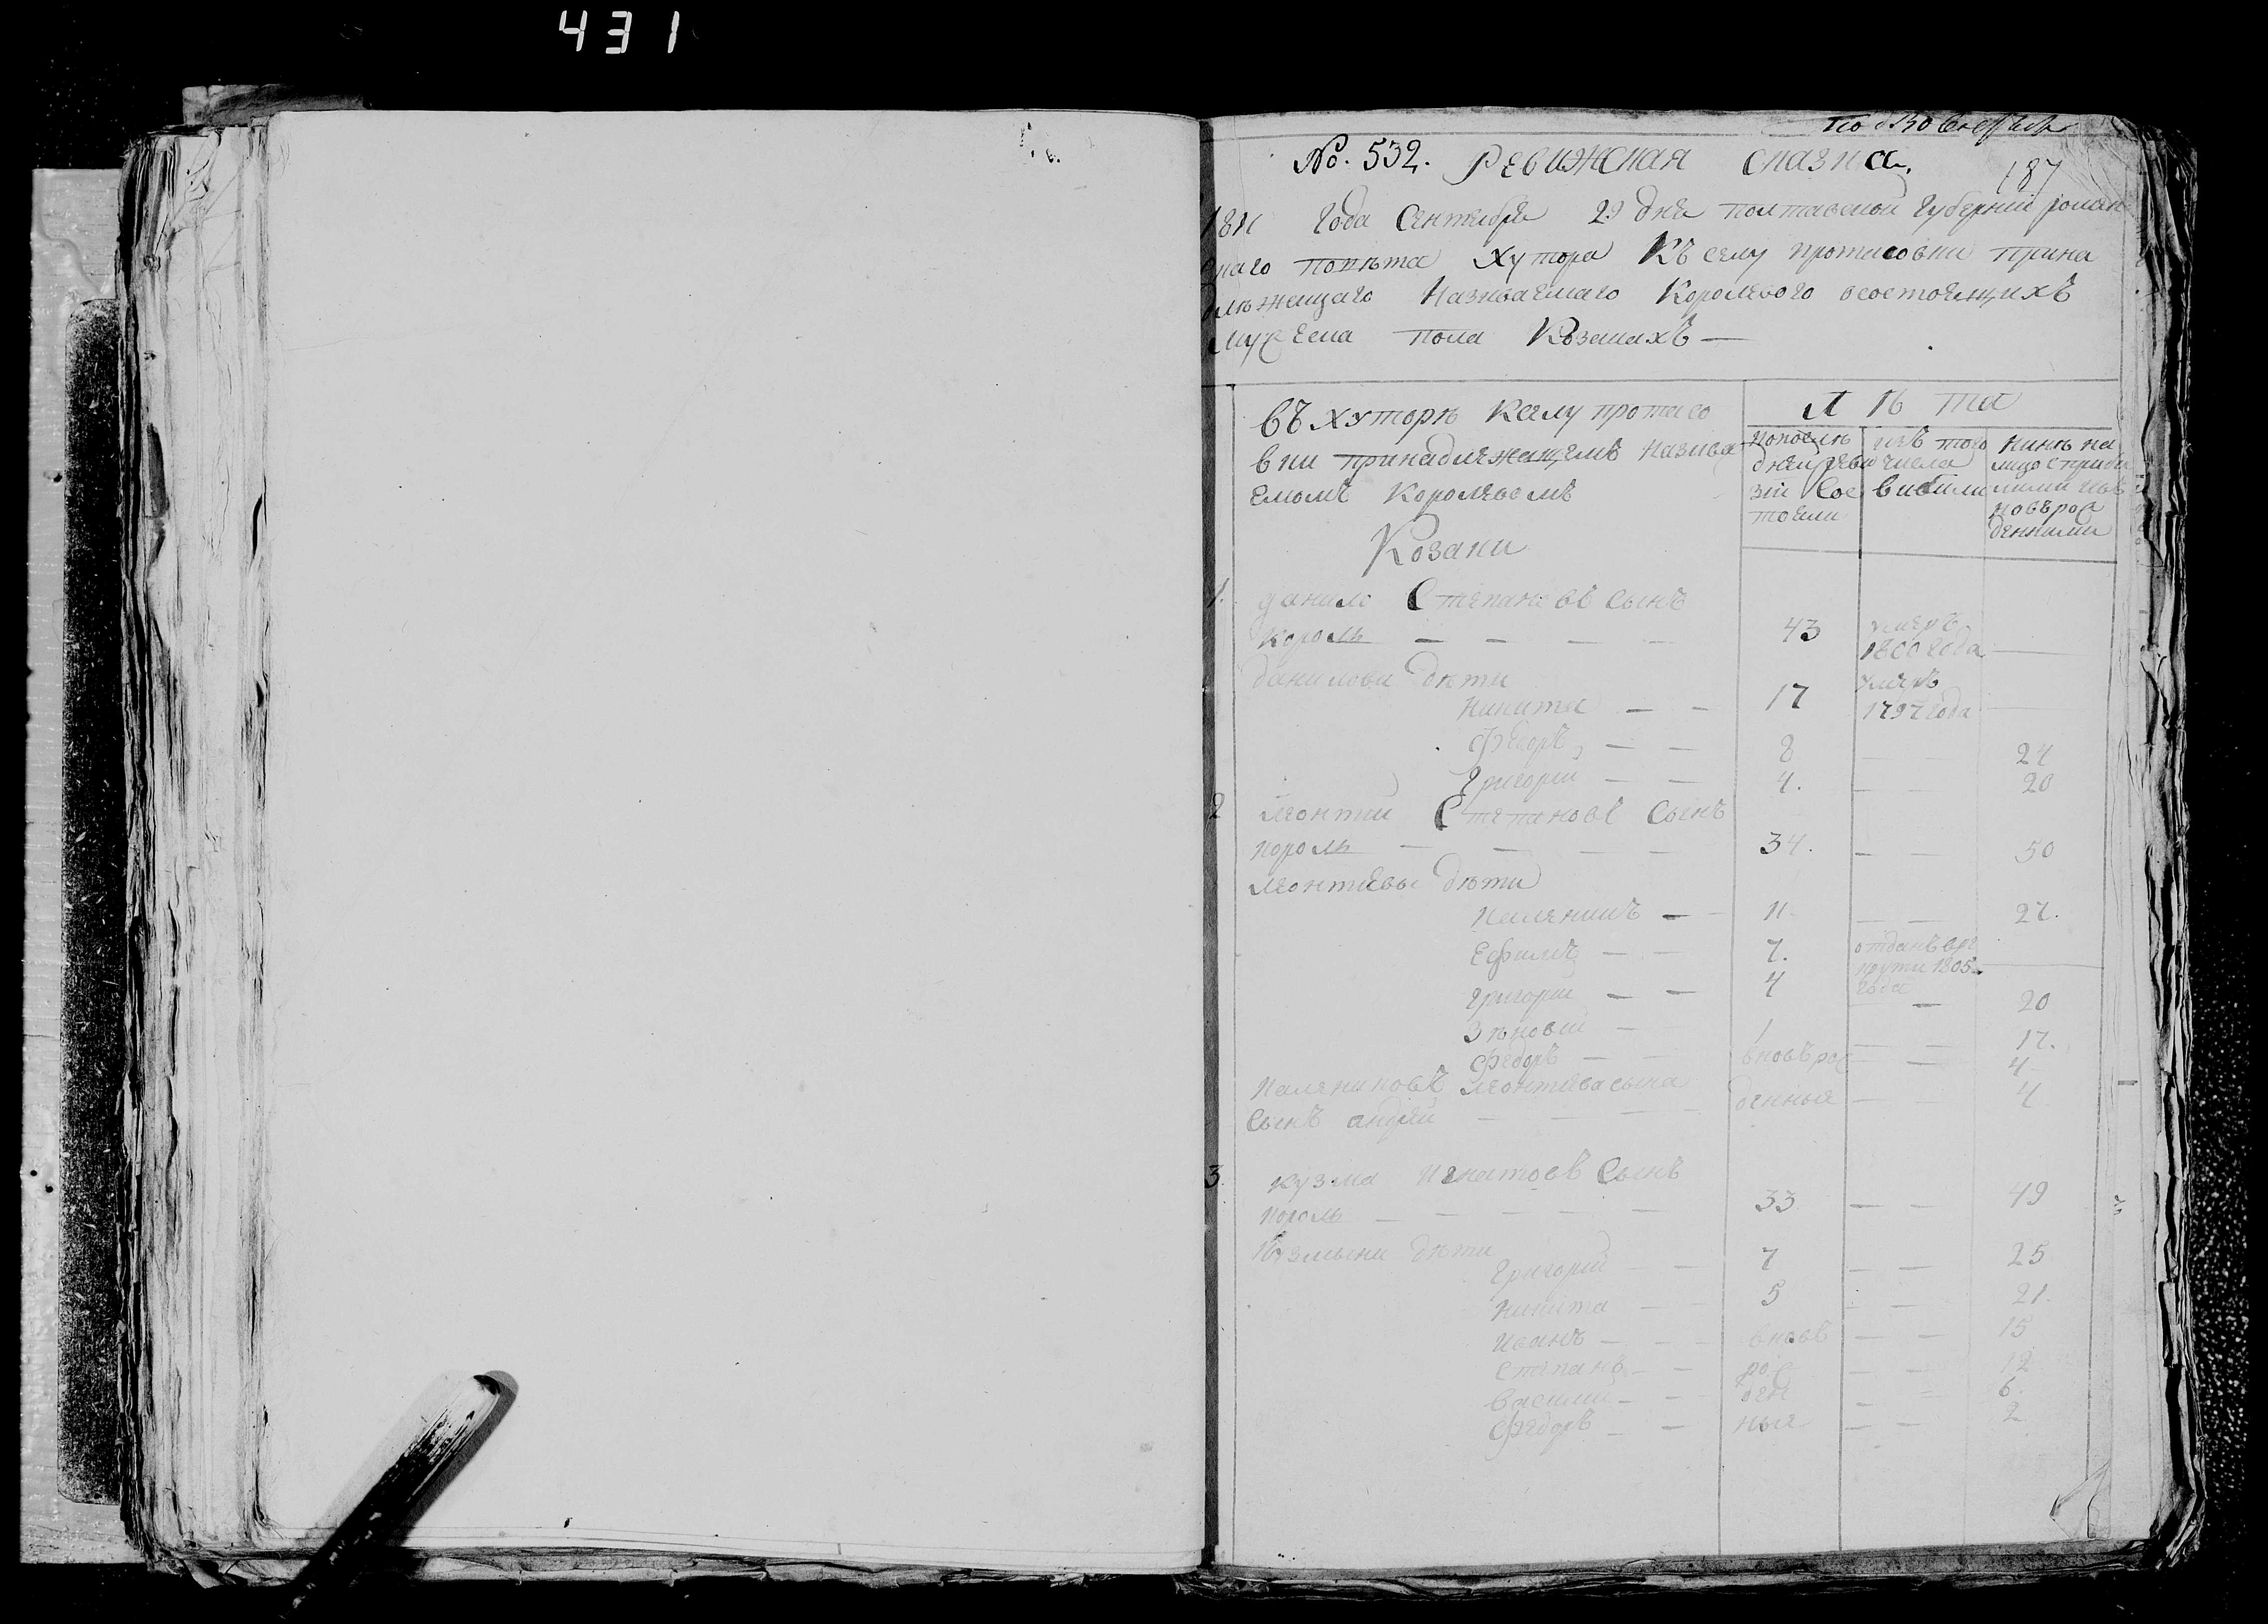 431
No. 532. Ревижская сказка.
187
1811 года Сентября 29 дня полтавской губернии ромен
скаго повѣта хутора Къ селу протасовки прина
длѣжещаго Называемаго Королевого осостоящихъ
мужеска пола Козакахъ —
Въ хуторѣ Кселу протасо
вки принадлежащемъ называ
емомъ Королевомъ
Козаки
Л ѣ та
Попослѣ
дней реви
зіи Сос
тояли
изъ того
числа
выбили
нинѣ на
лицо с прибы
лими изъ
новърож
денними
1. данило Степановъ Сынъ
король — — — — 43 умеръ
1800 года —
данилови дѣти
никита — — 17 умеръ
1797 года —
Федоръ — — 8 — — 24
григорий — — 4. — — 20
2 леонтий Степановъ Сынъ
король — — — — 34. — — 50
леонтиевы дѣти
Ефимъ — — 7. отданъ врe
круты 1805
года —
Каленикъ — — 11 — — 27.
григорий — — 4 — — 20
Зѣновий — — 1 — — 17.
Федоръ — — вновърож — — 4
Калениковъ леонтиева сына
Сынъ андрей — — — — денныя — — 4
3. кузма игнатовъ Сынъ
король — — — — — 33 — — 49
Кузмыни дѣти
григорий — — 7 — — 25
никита — — 5 — — 21.
иванъ — — вновъ — — 15
степанъ — — рож — — 12
василий — — ден — — 6.
Федоръ — — ные — — 2